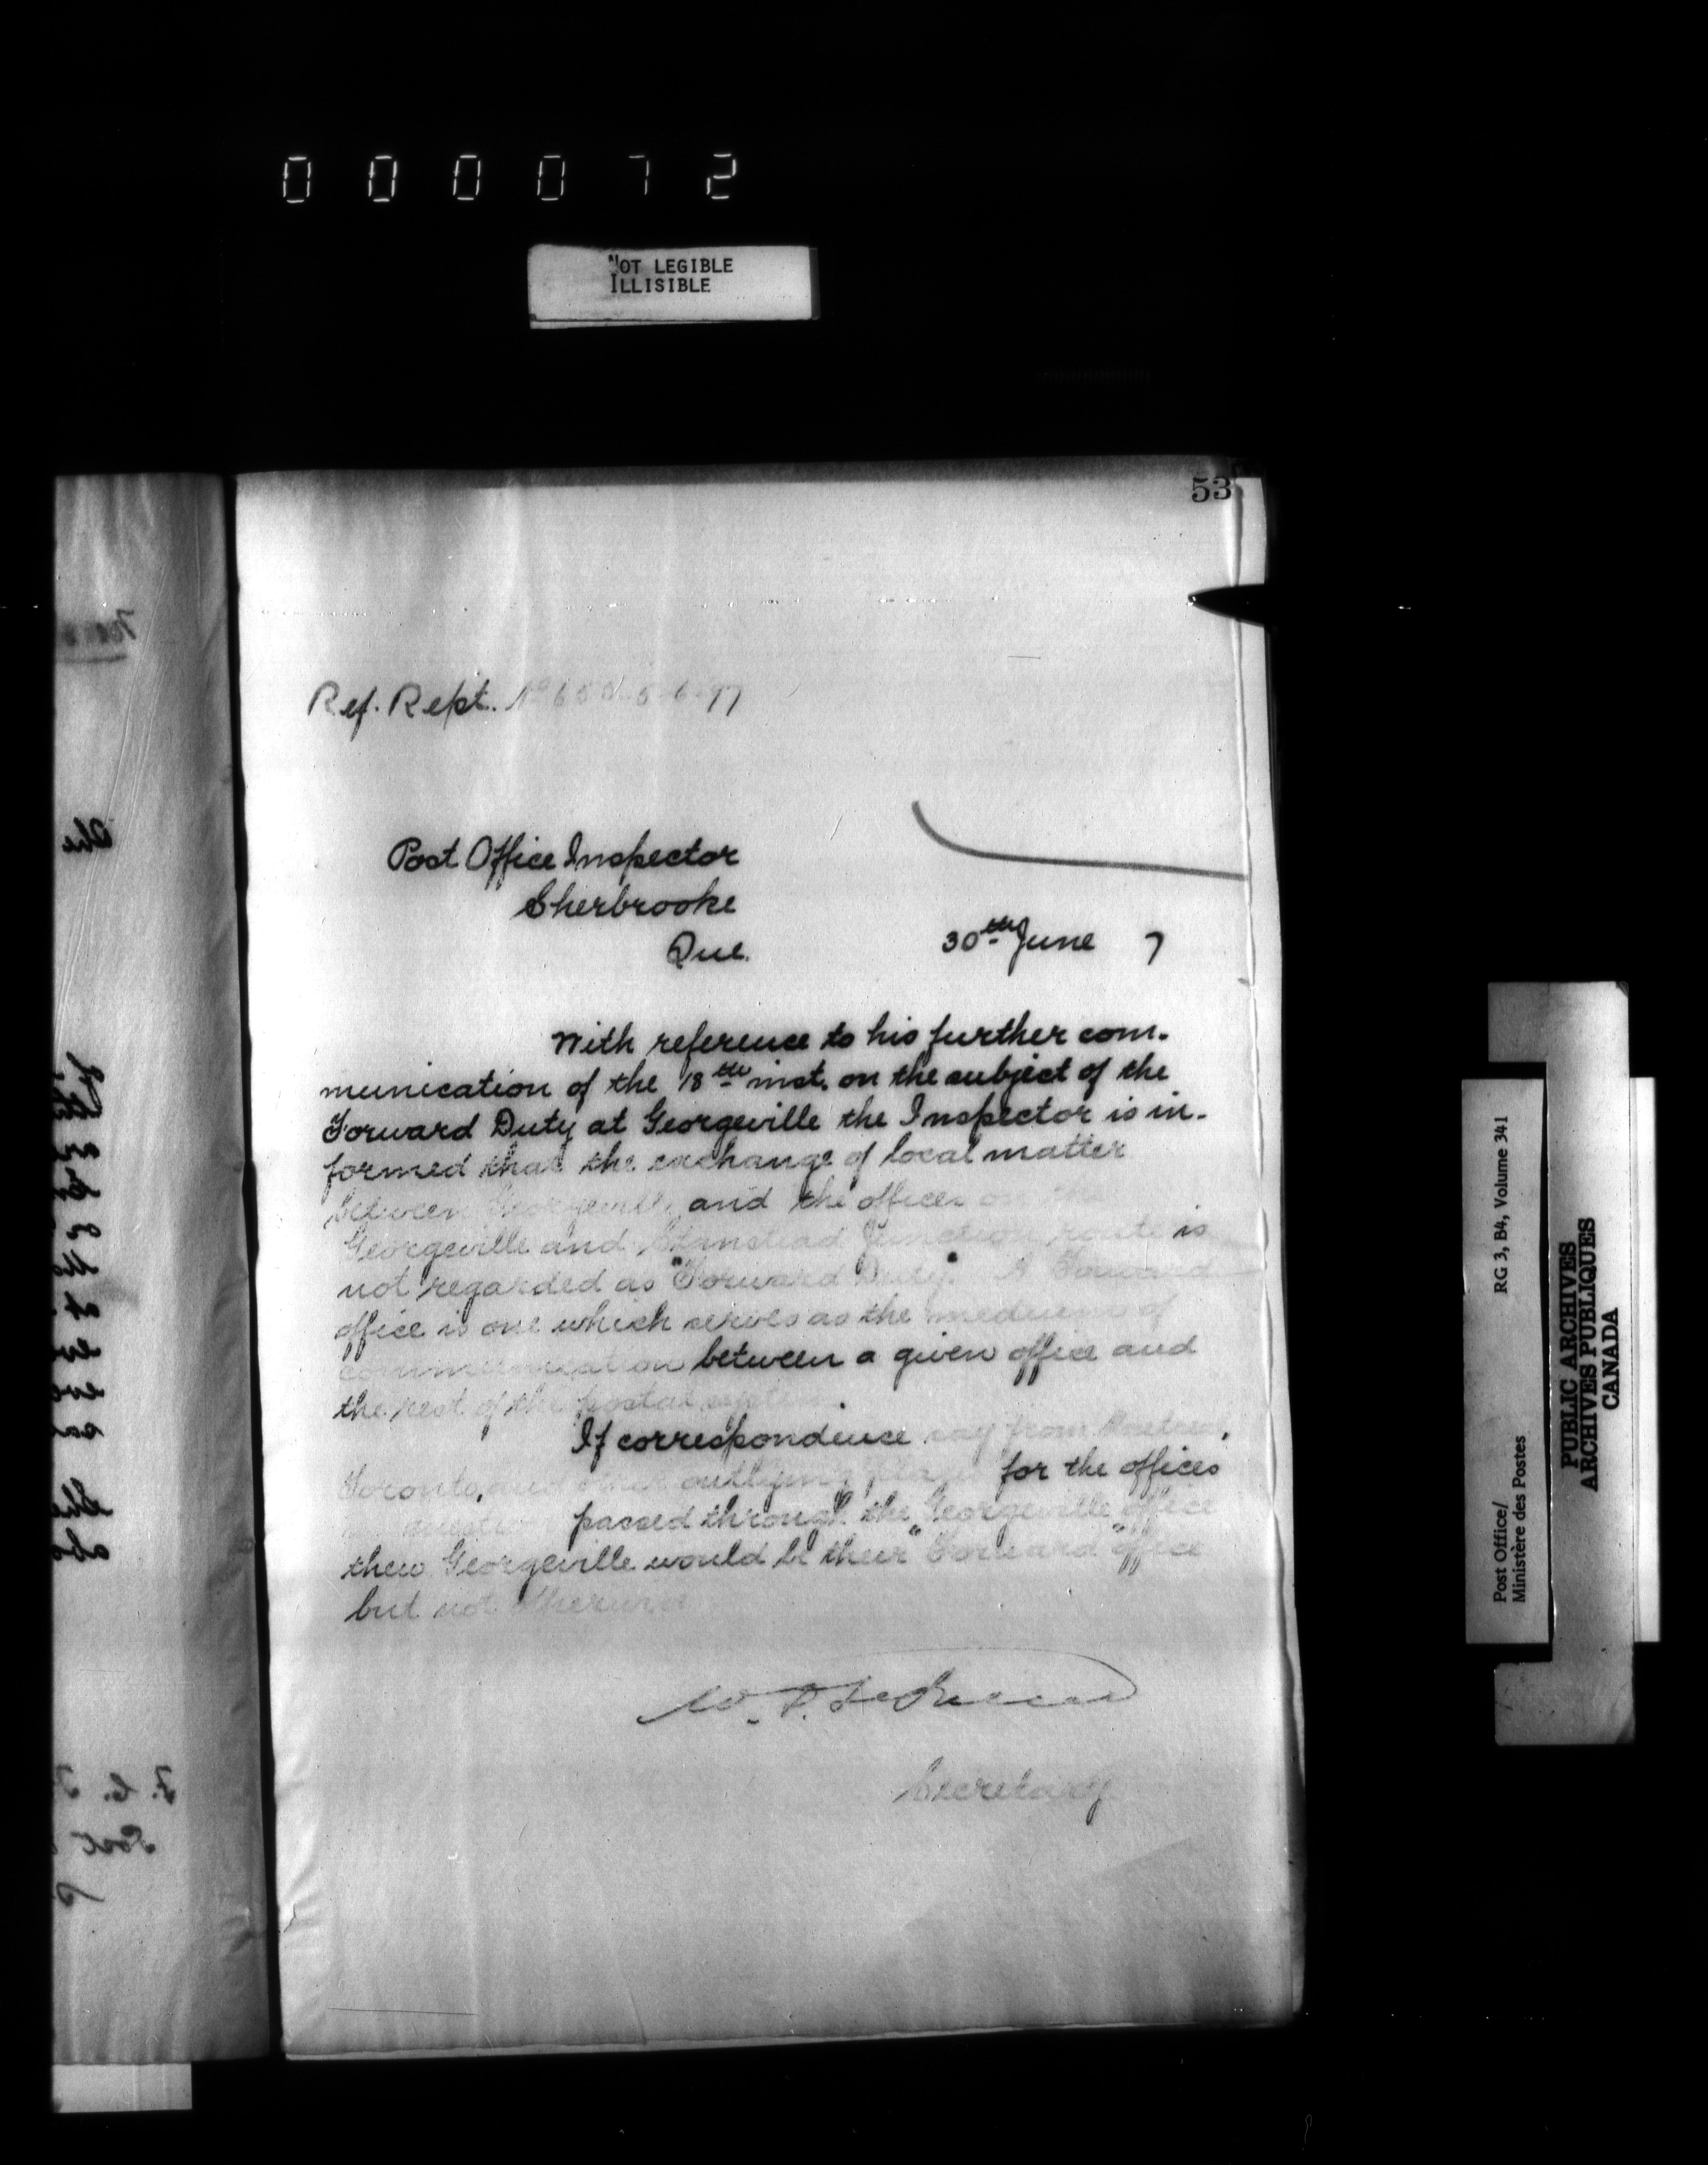 0 0 0 0 7 2
NOT LEGIBLE
ILLISIBLE
53
Ref. Rept. No 5-6-97
Post Office Inspector
Sherbrooke
Que.
30th June 7
With reference to his further com-
munication of the 18th inst. on the subject of the
Forward Duty at Georgeville the Inspector is in-
formed that the exchange of local matter
between Georgeville and the offices on the
Georgeville and Stanstead Junction route is
not regarded as "Forward Duty." A Forward
office is one which serves as the medium of
communication between a given office and
the rest of the postal system.
If correspondence say from Montreal,
Toronto, and other outlying places for the offices
in question passed through the Georgeville office
then Georgeville would be their "Forward" office
but not otherwise
W. D. LeSueur
Secretary
Post Office/ RG 3, B4, Volume 341
Ministère des Postes
PUBLIC ARCHIVES
ARCHIVES PUBLIQUES
CANADA